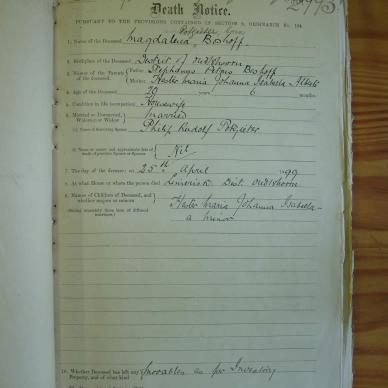 2993
Death Notice.
PURSUANT TO THE PROVISIONS CONTAINED IN SECTION 9, ORDINANCE No. 104.
Potgieter born
1. Name of the Deceased Magdalena Boshoff
2. Birthplace of the Deceased District of Oudtshoorn
3. Names of the Parents of the Deceased Father: Stephanus Petrus Boshoff
Mother: Hester Maria Johanna Isabella Alberts
4. Age of the Deceased 30 years 6 months.
5. Condition in life (occupation) Housewife
6. Married or Unmarried, Widower or Widow Married
(a) Name of Surviving Spouse Philip Rudolf Potgieter
Nil
7. The day of the decease: on 25th April 99
8. At what House or where the person died Dist. Oudtshoorn
9. Names of Children of Deceased, and whether majors or minors Hester Maria Johanna Isabella -
a minor
10. Whether Deceased has left any Property, and of what kind Movables as per Inventory